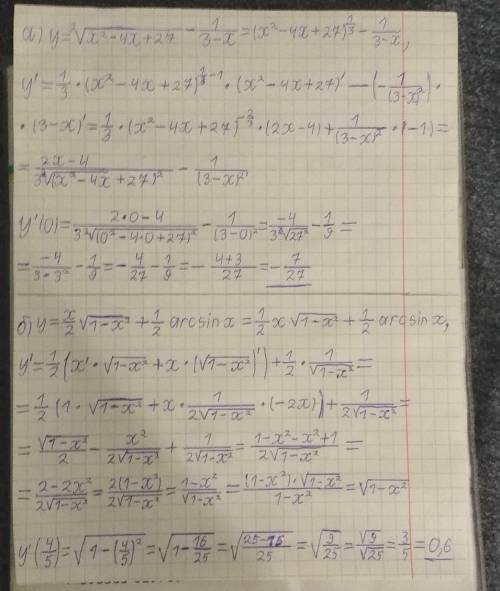 а) y = ³√(x²-4x+27) - 1/(3-x) = (x²-4x+27)^(1/3) - 1/(3-x),
y' = 1/3 · (x²-4x+27)^(1/3-1) · (x²-4x+27)' - (-1/(3-x)²) ·
· (3-x)' = 1/3 · (x²-4x+27)^(-2/3) · (2x-4) + 1/(3-x)² · (-1) =
= (2x-4)/(3 ³√(x²-4x+27)²) - 1/(3-x)²,
y'(0) = (2·0-4)/(3 ³√(0²-4·0+27)²) - 1/(3-0)² = -4/(3 ³√27²) - 1/9 =
= -4/(3·3²) - 1/9 = -4/27 - 1/9 = - (4+3)/27 = - 7/27
б) y = x/2 √(1-x²) + 1/2 arcsin x = 1/2 x √(1-x²) + 1/2 arcsin x,
y' = 1/2 (x' · √(1-x²) + x · (√(1-x²))') + 1/2 · 1/√(1-x²) =
= 1/2 (1 · √(1-x²) + x · 1/(2√(1-x²)) · (-2x)) + 1/(2√(1-x²)) =
= √(1-x²)/2 - x²/(2√(1-x²)) + 1/(2√(1-x²)) = (1-x²-x²+1)/(2√(1-x²)) =
= (2-2x²)/(2√(1-x²)) = 2(1-x²)/(2√(1-x²)) = (1-x²)/√(1-x²) = (1-x²)·√(1-x²)/(1-x²) = √(1-x²)
y'(4/5) = √(1-(4/5)²) = √(1-16/25) = √((25-16)/25) = √(9/25) = √9/√25 = 3/5 = 0,6